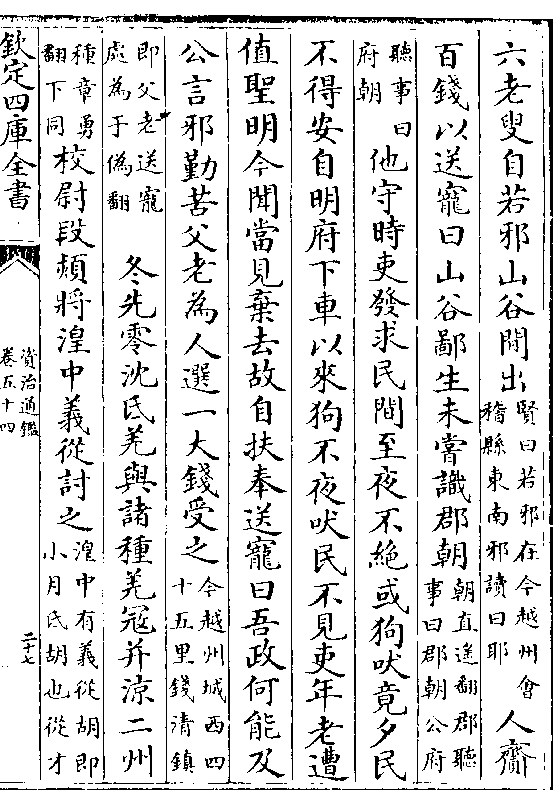 六老叟自若邪山谷間出賢曰若邪在今越州會稽縣東南邪讀曰耶人齎
百錢以送寵曰山谷鄙生未嘗識郡朝朝直遥翻郡聽事曰郡朝公府
聽事曰府朝他守時吏發求民間至夜不絶或狗吠竟夕民
不得安自明府下車以來狗不夜吠民不見吏年老遭
值聖明今聞當見棄去故自扶奉送寵曰吾政何能及
公言邪勤苦父老為人選一大錢受之今越州城西四十五里錢清鎮
即父老送寵處為于偽翻冬先零沈氐羌與諸種羌寇并涼二州
種章勇翻下同校尉段熲將湟中義從討之湟中有義從胡即小月氏胡也從才
欽定四庫全書
資治通鑑
卷五十四
二十七